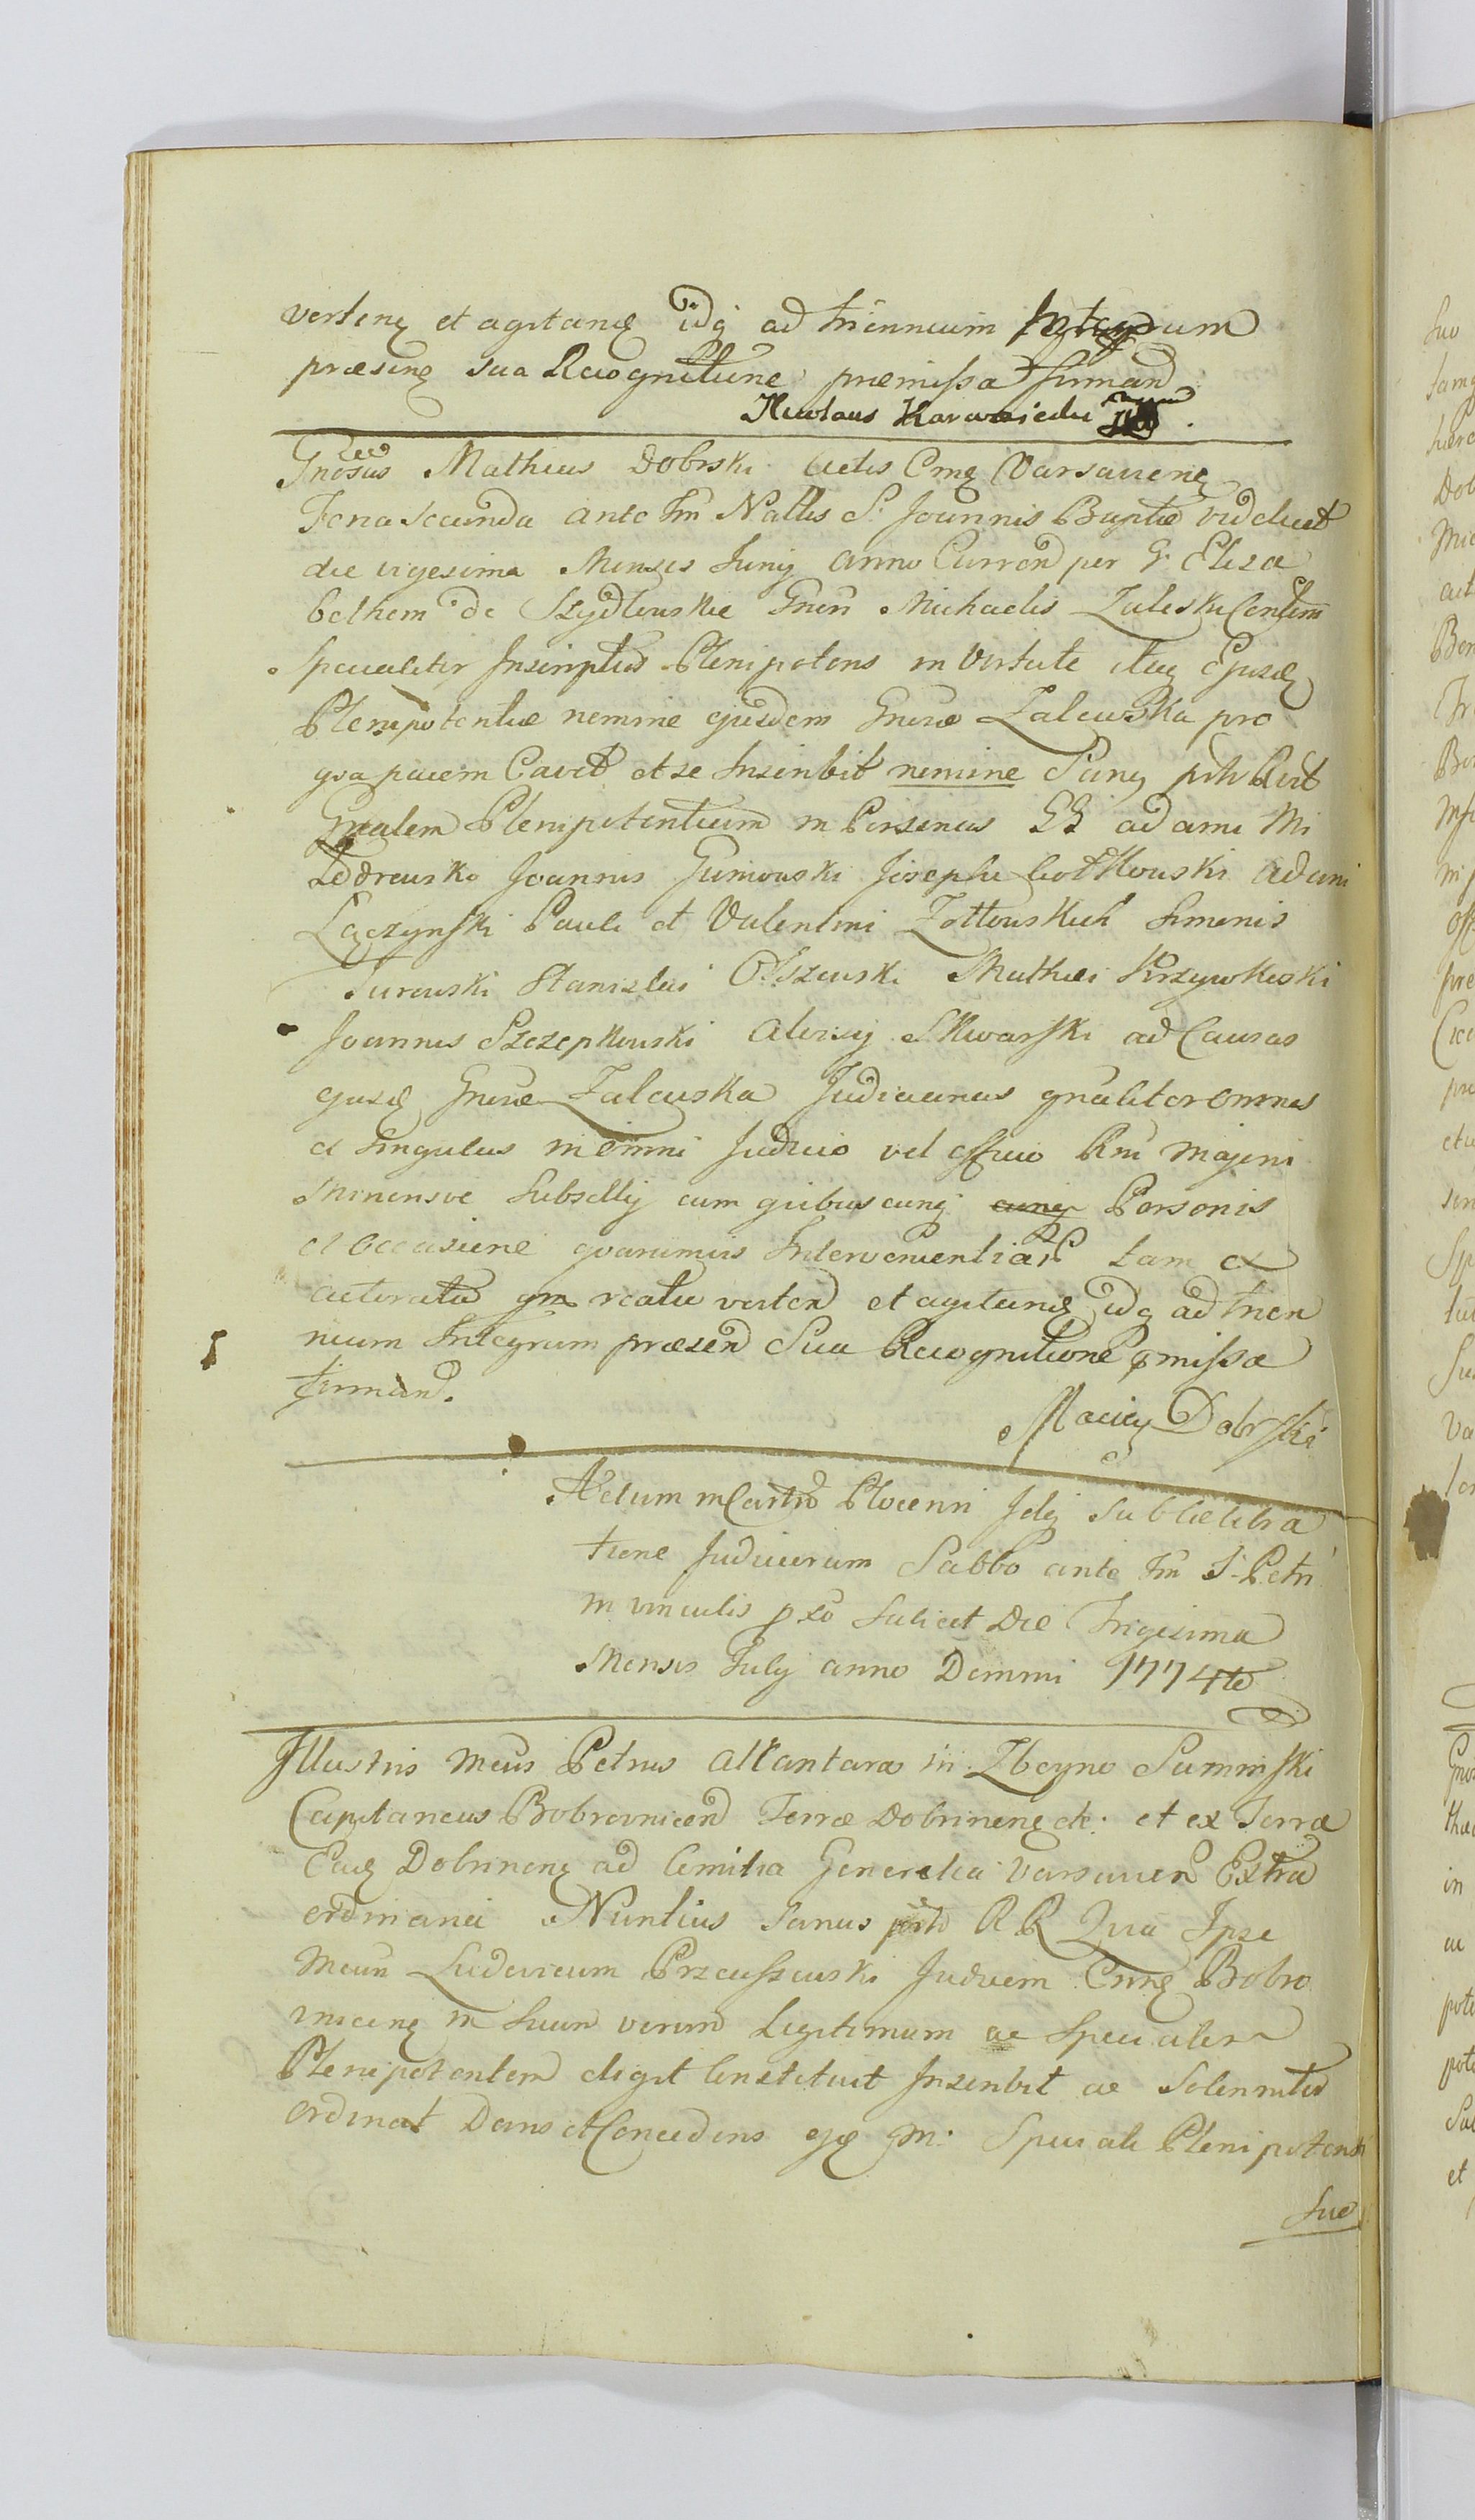 verten et agitan idq ad triennium Integrum
præsen sua Recognitione præmissa firmand
Nicolaus Karwosiecki
Gnosus Matheus Dobrski Actis Cmę Varsavien
Feria Secunda ante Fm Natlis S. Joannis Baptæ videlicet
die vigesima Mensis Junij anno Curren per G. Eliza
bethem de Szydłowskie Gnesi Michaelis Zaleski Contem
specialiter Inscriptus Plenipotens in Virtute itaq Ejusd
Plenipotentiæ nomine ejusdem Gnesæ Zalewska pro
qva pacem Cavet et se Inscribit nomine
Gnralem Plenipotentiam in Personas GG adami Mi
Joannis Gumowski Josephi Adami
Łączynski Pauli et Valentini Zołtowskich Simonis
Turowski Stanislai Olszewski Mathei Krzywkoski
Joannis Szczepkowski Aloisij Skwarski ad Causas
ejusd Gnesæ Zalewska Judiciarias gnaliter omnes
et singulas in omni Judicio vel officio Rni Majoris
Minorisve Subsellij cum quibuscunq cunq Personis
et occasione qvarumvis Intervenientiar tam ex
actoratu qm reatu verten et agitan idq ad trien
nium Integrum præsen Sua Recognitione pmissa
firmand.
Maciey Dobrski
Actum in Castro Plocenn Feliq Sub Celebra
tione Judiciorum Sabbo ante Fm S. Petri
in vinculis pxo Scilicet Die Trigesima
Mensis Julij anno Domini 1774to
Illustris Mcus Petrus Alcantara in Zboyno Suminski
Capitaneus Bobrovnicen Terræ Dobrinen etc. et ex Terra
Ead Dobrinen ad Comitia Generalia Varsavien Extra
ordinaria Nuntius Sanus R R Qvia Ipse
Mcum Ludovicum Przeciszewski Judicem Cmę Bobro
vnicen in Suum verum Legitimum ac Specialem
Plenipotentem eligit Constituit Inscribit ac Solenniter
ordinat Dans et Concedens M. Speciali Plenipotenti
Suo